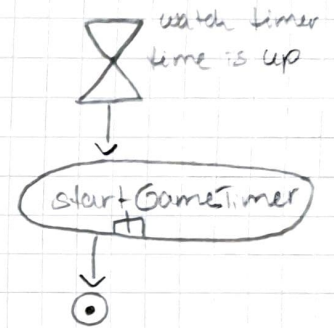 watch timer
time is up
startGameTimer